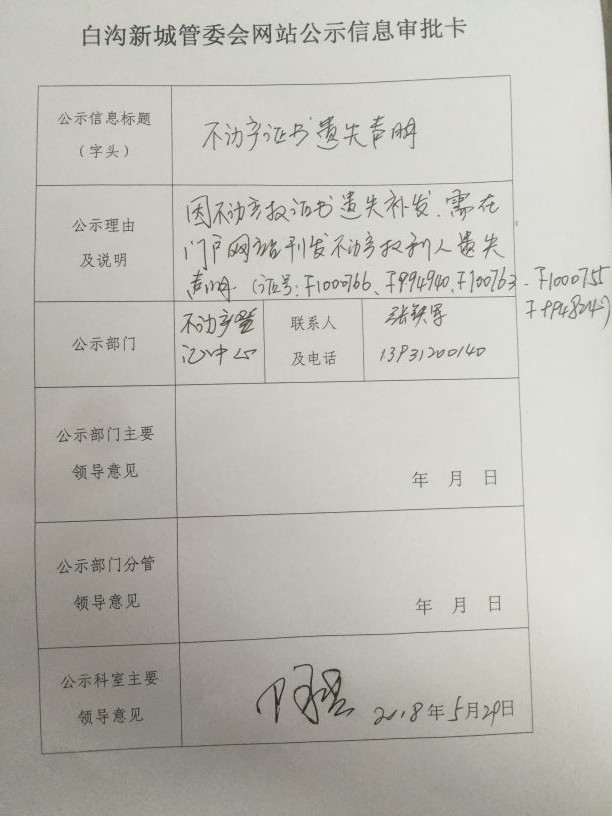 白沟新城管委会网站公示信息审批卡
公示信息标题
（字头）
不动产证书遗失声明
公示理由
及说明
因不动产权证书遗失补发.需在
门户网站刊发不动产权利人遗失
声明.(证号:F1000766、F994940、F100763、F1000755
F994824)
公示部门
不动产登
记中心
联系人
及电话
张铁军
13931200140
公示部门主要
领导意见
年 月 日
公示部门分管
领导意见
年 月 日
公示科室主要
领导意见
2018年5月29日